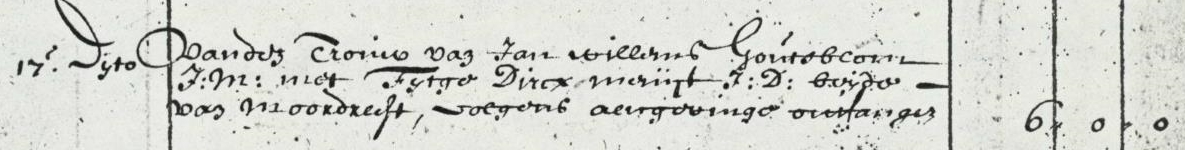 17e. Dyto Vande Trouw van Jan willems Goutsblom
J: M: met Fytge Dircx J: D: beyde
van Moordrecht, volgens aengevinge ontfangen 6 - 0 - 0